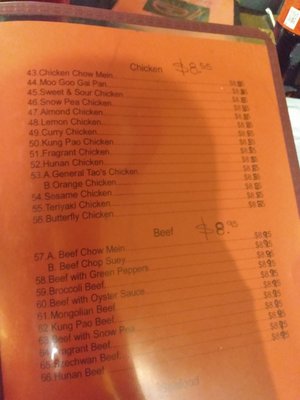 Chicken $8.55
43.Chicken Chow Mein
44.Moo Goo Gai Pan
45.Sweet & Sour Chicken
46.Snow Pea Chicken
47.Almond Chicken
48.Lemon Chicken
49.Curry Chicken
50.Kung Pao Chicken
51.Fragrant Chicken
52.Hunan Chicken
53.A.General Tao's Chicken
B.Orange Chicken
54.Sesame Chicken
55.Teriyaki Chicken
56.Butterfly Chicken
Beef $8.95
57.A. Beef Chow Mein $8.95
B. Beef Chop Suey $8.95
58.Beef with Green Peppers $8.95
59.Broccoli Beef $8.95
60.Beef with Oyster Sauce $8.95
61.Mongolian Beef $8.95
62.Kung Pao Beef $8.95
63.Beef with Snow Pea $8.95
64.Fragrant Beef $8.95
65.Szechwan Beef $8.95
66.Hunan Beef $8.95